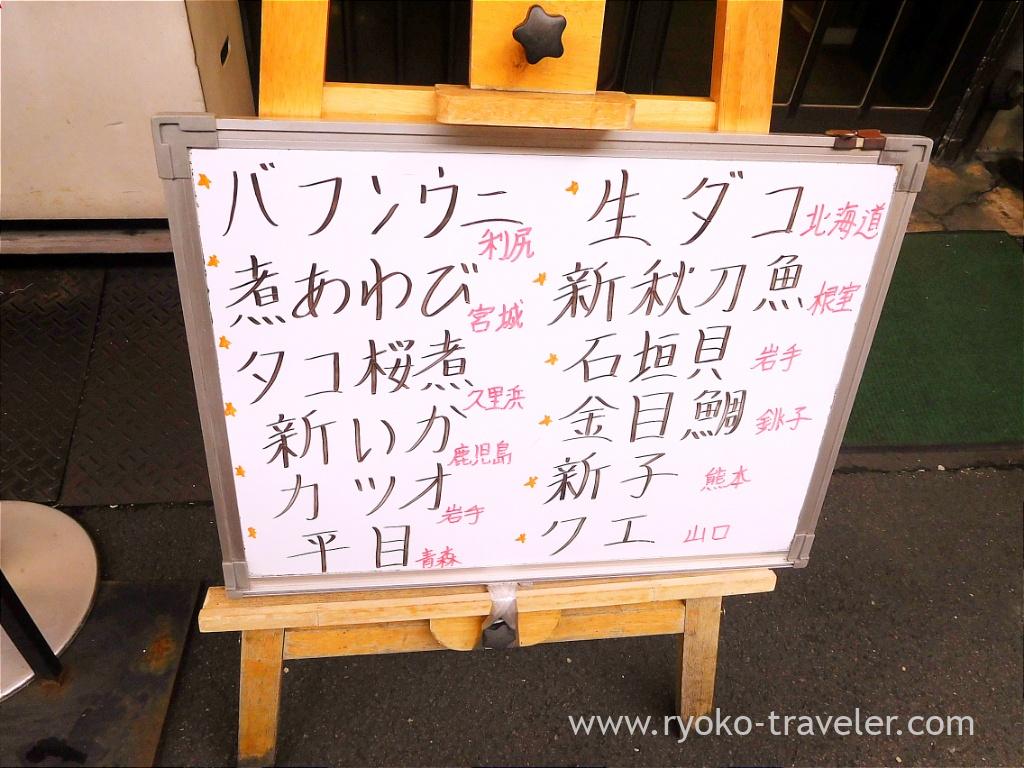 バフンウニ 利尻
煮あわび 宮城
タコ桜煮 久里浜
新いか 鹿児島
カツオ 岩手
平目 青森
生ダコ 北海道
新秋刀魚 根室
石垣貝 岩手
金目鯛 銚子
新子 熊本
クエ 山口
www.ryoko-traveler.com